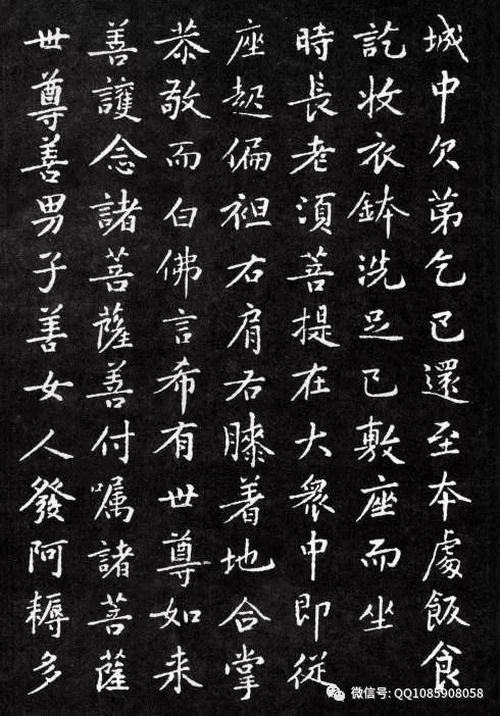 城中欠苐乞已還至本處飯食
訖收衣鉢洗足已敷座而坐
時長老湏菩提在大衆中即從
座起偏袒右肩右膝着地合掌
恭敬而白佛言希有世尊如来
善護念諸菩薩善付囑諸菩薩
世尊善男子善女人發阿耨多
微信号: QQ1085908058